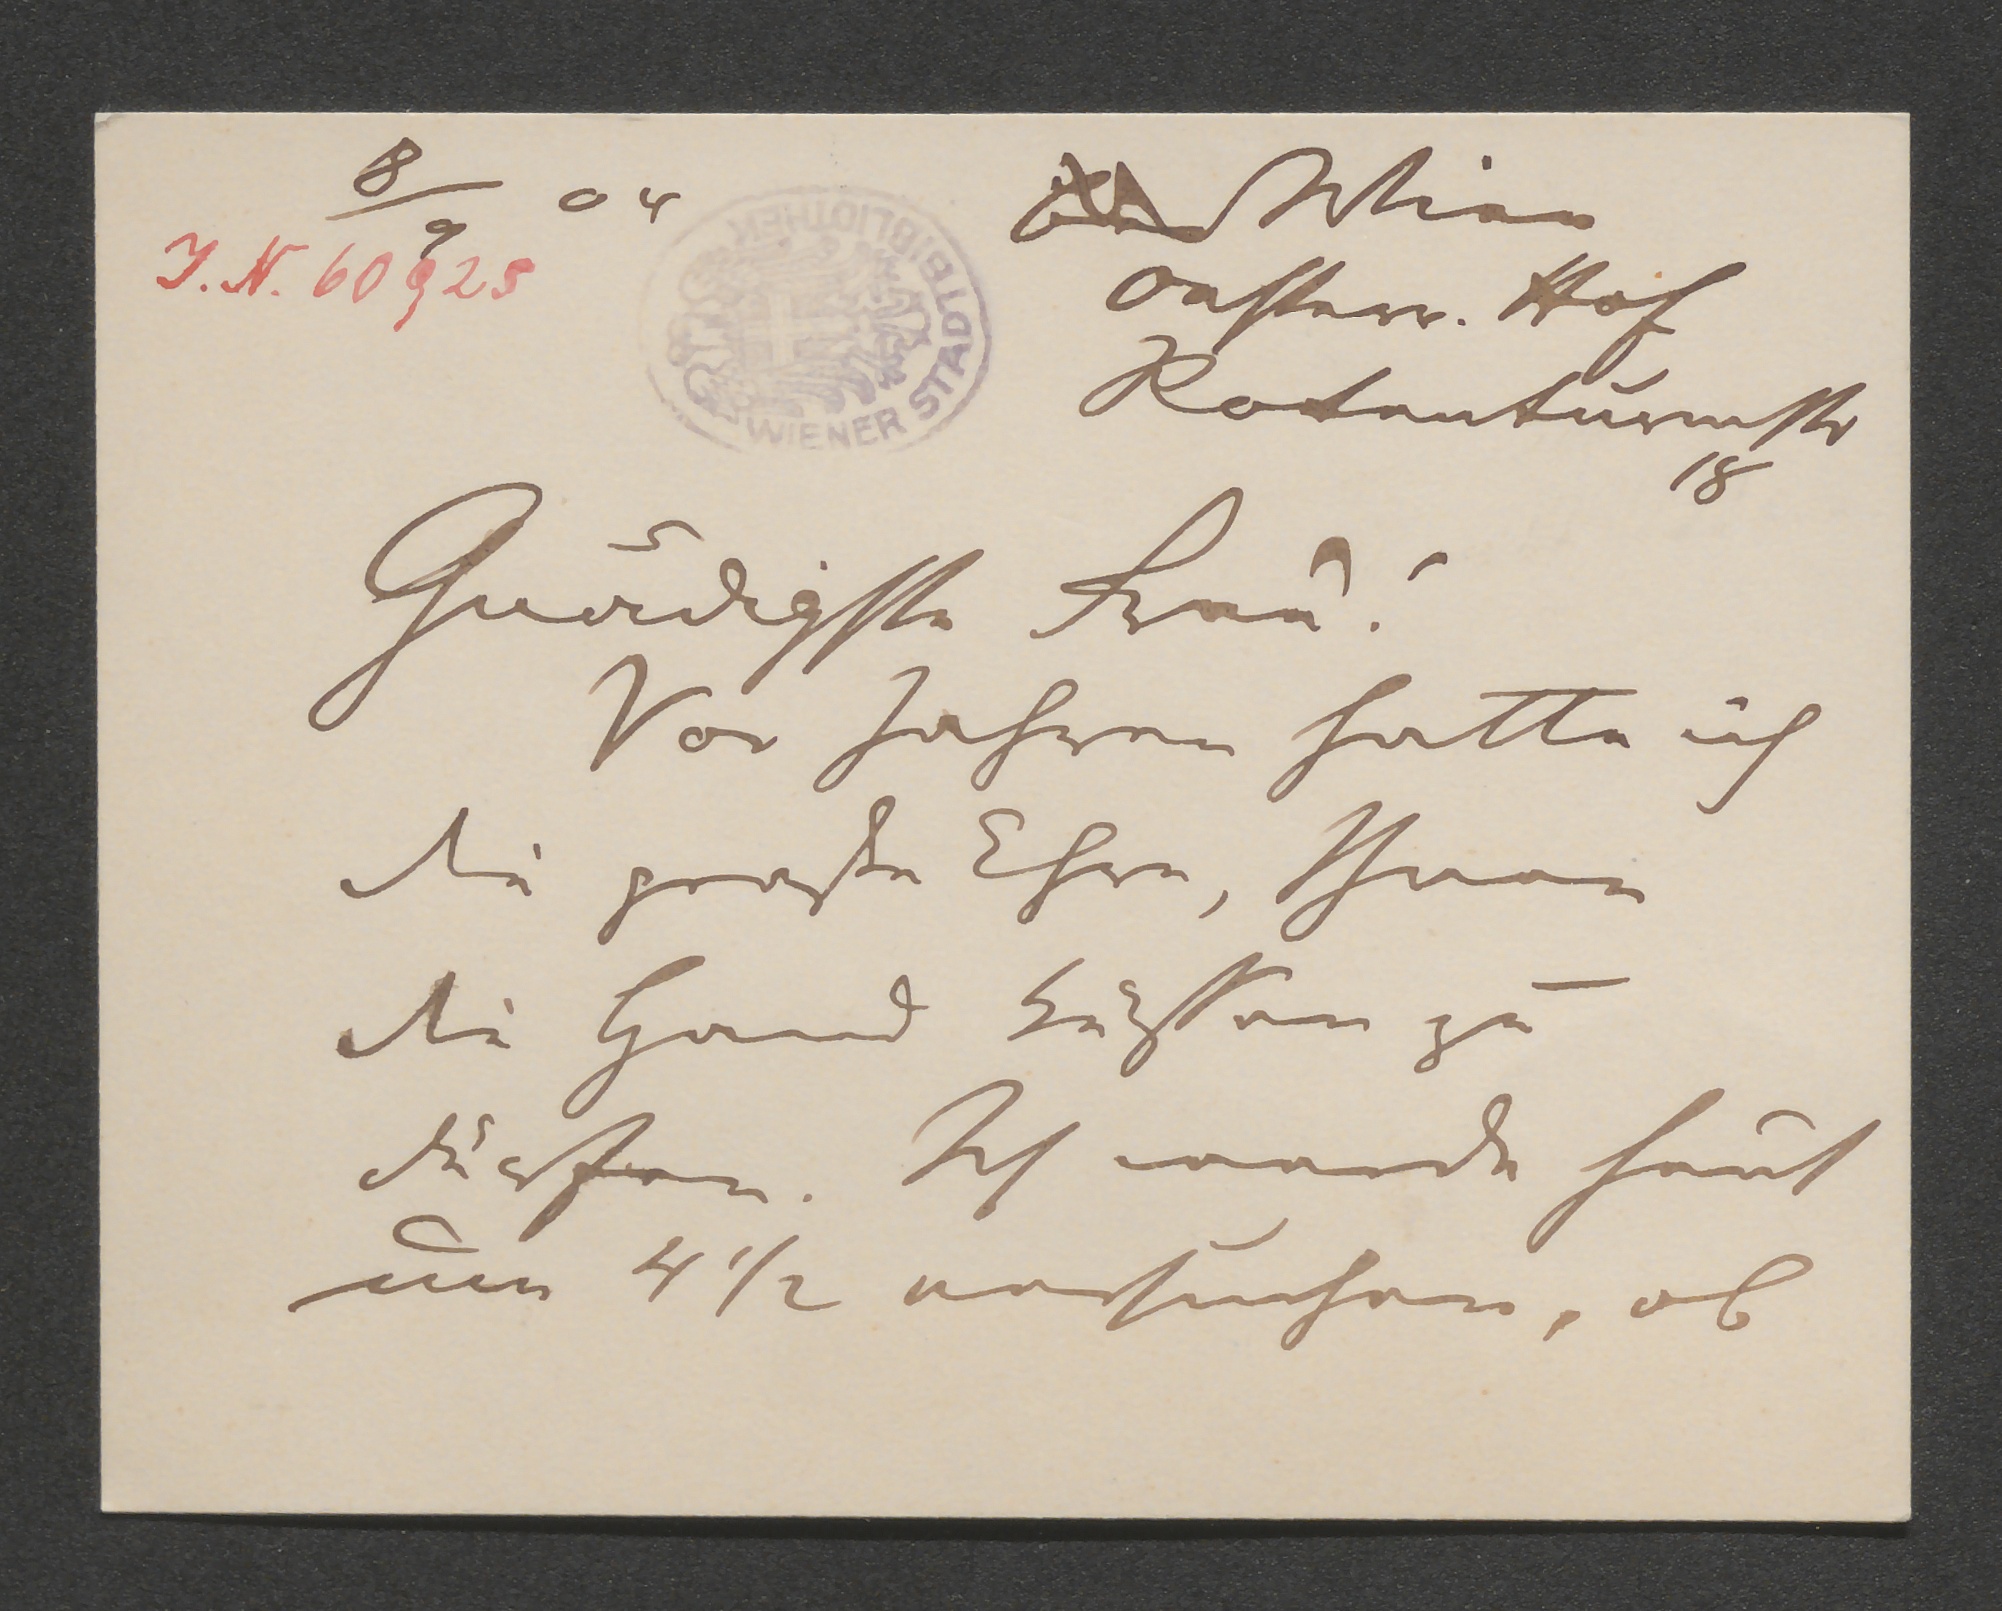 8/9 04
Wien
Oesterr. Hof
Rotenturmstr
18
I.N. 60925
WIENER STADTBIBLIOTHEK
Gnädigste Frau!
Vor Jahren hatte ich
die große Ehre, Ihnen
die Hand küssen zu
dürfen. Ich werde heut
um 4 1/2 versuchen, ob